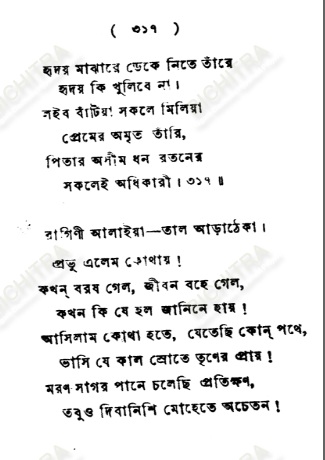 ( ৩১৭ )
হৃদয় মাঝারে ডেকে নিতে তাঁরে
হৃদয় কি খুলিবে না।
লইব বাঁটিয়া সকলে মিলিয়া
প্রেমের অমৃত তাঁরি,
পিতার অসীম ধন রতনের
সকলেই অধিকারী। ৩১৭ ॥
রাগিণী আলাইয়া—তাল আড়াঠেকা।
প্রভু এলেম কোথায়!
কখন্ বরষ গেল, জীবন বহে গেল,
কখন কি যে হল জানিনে হায়!
আসিলাম কোথা হতে, যেতেছি কোন্ পথে,
ভাসি যে কাল স্রোতে তৃণের প্রায়!
মরণ সাগর পানে চলেছি প্রতিক্ষণ,
তবুও দিবানিশি মোহেতে অচেতন!